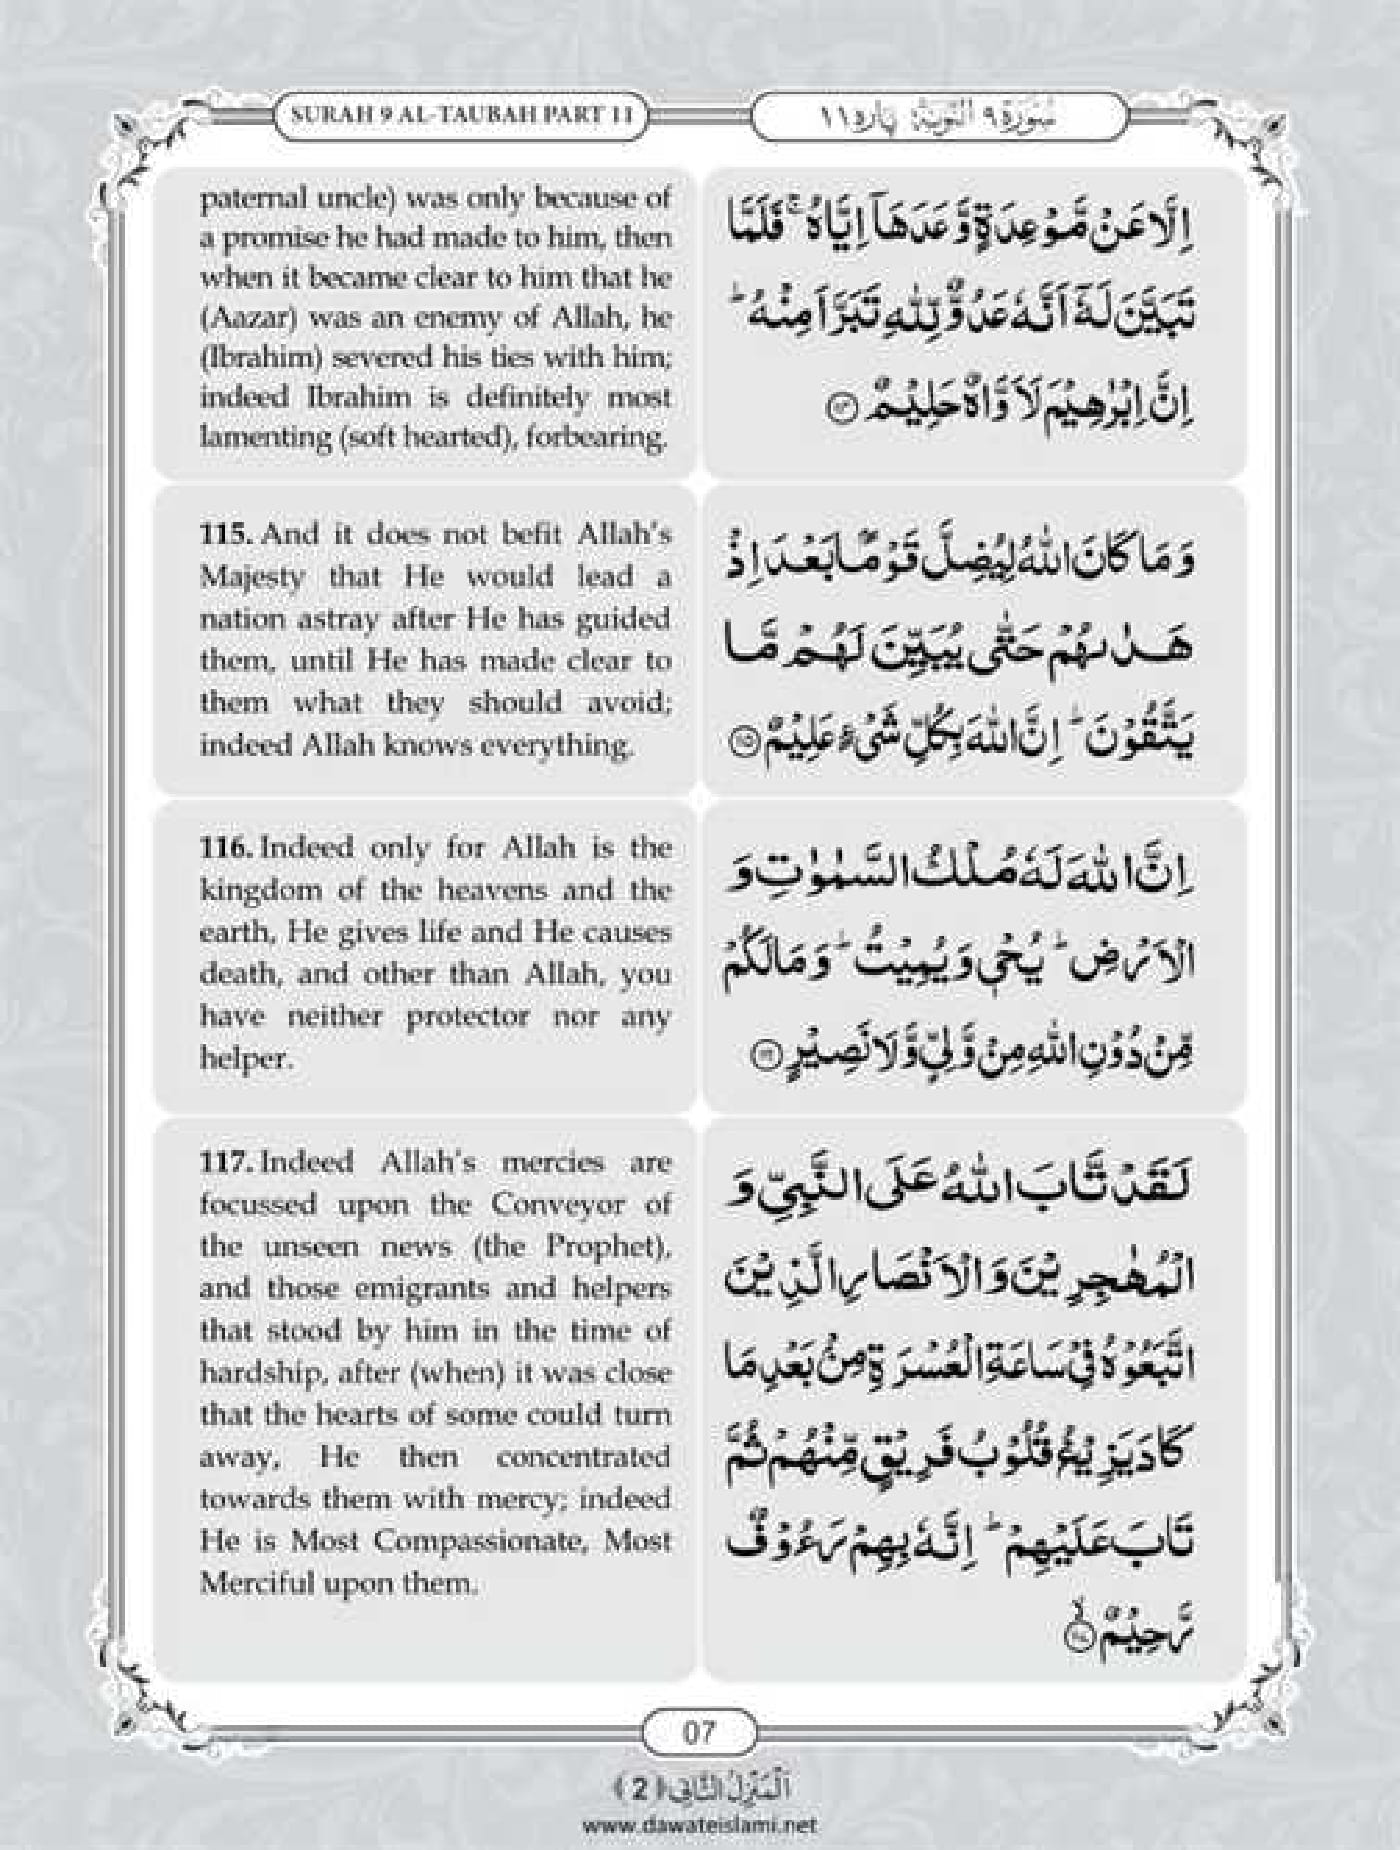 SURAH 9 AL-TAUBAH PART 11
سُوْرَة ٩ اَلتَّوْبَة پاره ١١
paternal uncle) was only because of
a promise he had made to him, then
when it became clear to him that he
(Aazar) was an enemy of Allah, he
(Ibrahim) severed his ties with him;
indeed Ibrahim is definitely most
lamenting (soft hearted), forbearing.
اِلَّا عَنْ مَّوْعِدَةٍ وَّعَدَهَاۤ اِيَّاهُ ۚ فَلَمَّا
تَبَيَّنَ لَهٗۤ اَنَّهٗ عَدُوٌّ لِّلّٰهِ تَبَرَّاَ مِنْهُ ؕ
اِنَّ اِبْرٰهِيْمَ لَاَوَّاهٌ حَلِيْمٌ ﴿۱۱۴﴾
115. And it does not befit Allah's
Majesty that He would lead a
nation astray after He has guided
them, until He has made clear to
them what they should avoid;
indeed Allah knows everything.
وَ مَا كَانَ اللّٰهُ لِيُضِلَّ قَوْمًۢا بَعْدَ اِذْ
هَدٰىهُمْ حَتّٰى يُبَيِّنَ لَهُمْ مَّا
يَتَّقُوْنَ ؕ اِنَّ اللّٰهَ بِكُلِّ شَيْءٍ عَلِيْمٌ ﴿۱۱۵﴾
116. Indeed only for Allah is the
kingdom of the heavens and the
earth, He gives life and He causes
death, and other than Allah, you
have neither protector nor any
helper.
اِنَّ اللّٰهَ لَهٗ مُلْكُ السَّمٰوٰتِ وَ
الْاَرْضِ ؕ يُحْيٖ وَ يُمِيْتُ ؕ وَ مَا لَكُمْ
مِّنْ دُوْنِ اللّٰهِ مِنْ وَّلِيٍّ وَّ لَا نَصِيْرٍ ﴿۱۱۶﴾
117. Indeed Allah's mercies are
focussed upon the Conveyor of
the unseen news (the Prophet),
and those emigrants and helpers
that stood by him in the time of
hardship, after (when) it was close
that the hearts of some could turn
away, He then concentrated
towards them with mercy; indeed
He is Most Compassionate, Most
Merciful upon them.
لَقَدْ تَّابَ اللّٰهُ عَلَى النَّبِيِّ وَ
الْمُهٰجِرِيْنَ وَ الْاَنْصَارِ الَّذِيْنَ
اتَّبَعُوْهُ فِيْ سَاعَةِ الْعُسْرَةِ مِنْۢ بَعْدِ مَا
كَادَ يَزِيْغُ قُلُوْبُ فَرِيْقٍ مِّنْهُمْ ثُمَّ
تَابَ عَلَيْهِمْ ؕ اِنَّهٗ بِهِمْ رَءُوْفٌ
رَّحِيْمٌ ﴿۱۱۷﴾ۙ
07
اَلْمَنْزِلُ الثَّانِی ﴿2﴾
www.dawateislami.net